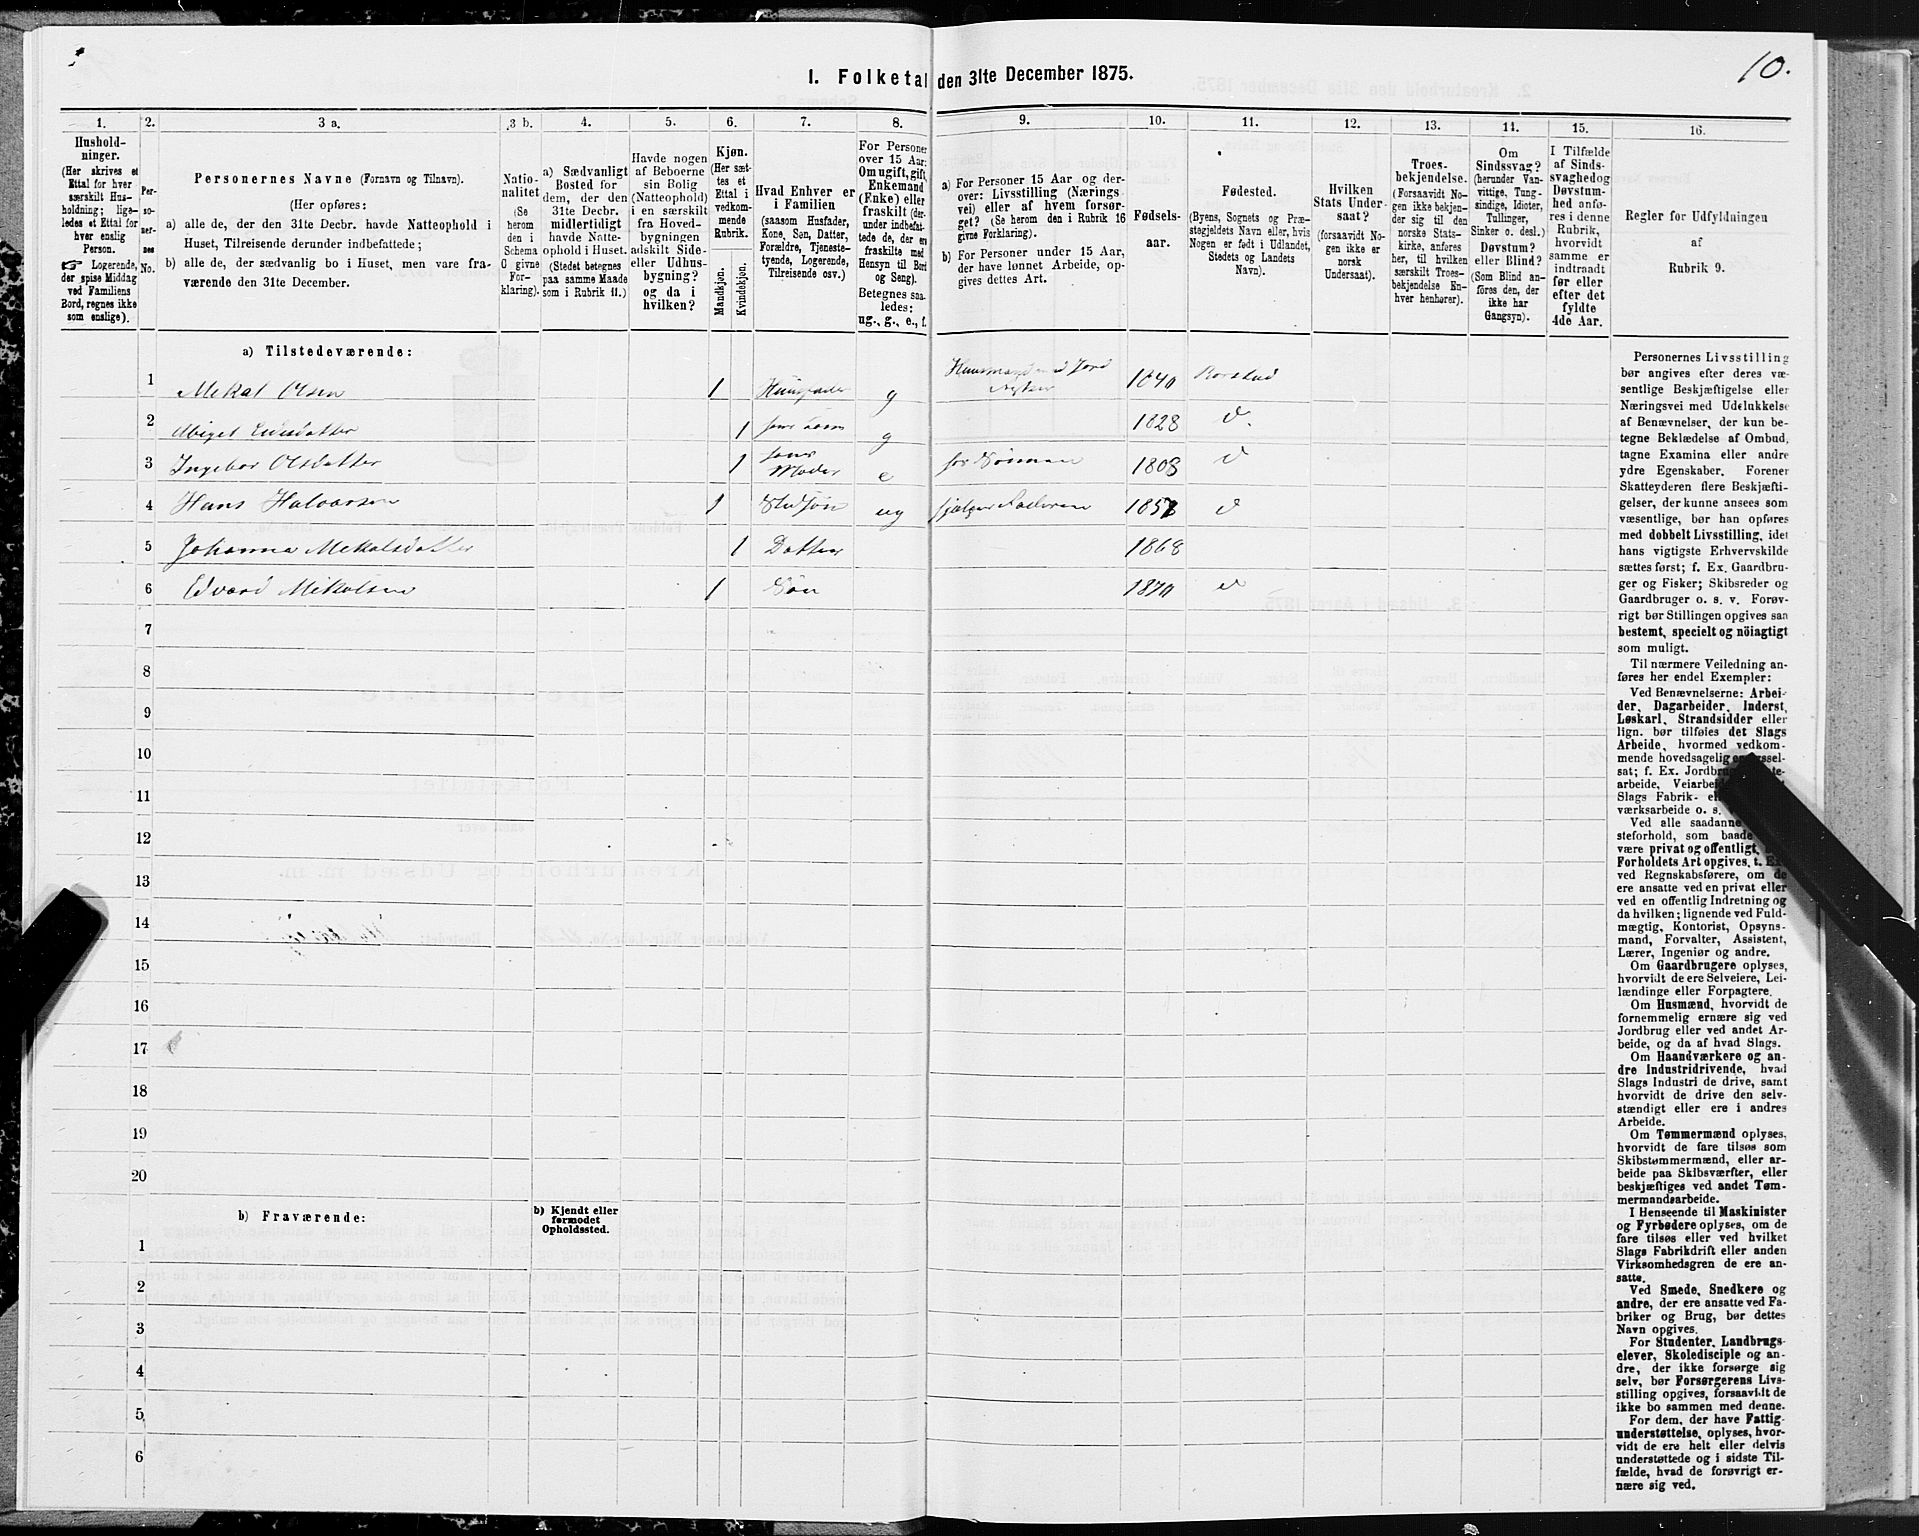 10.
I. Folketal den 31te December 1875.
1.
Hushold-
ninger.
(Her skrives et
Ettal for hver
særskilt Hus-
holdning; lige-
ledes et Ettal for
hver enslig
Person.
☞ Logerende,
der spise Middag
ved Familiens
Bord, regnes ikke
som enslige).
2.
Per-
so-
ner-
nes
No.
3 a.
Personernes Navne (Fornavn og Tilnavn).
(Her opføres:
a) alle de, der den 31te Decbr. havde Natteophold i
Huset, Tilreisende derunder indbefattede;
b) alle de, der sædvanlig bo i Huset, men vare fra-
værende den 31te December.
3 b.
Natio-
nalitet
(Se
herom
den i
Schema
C givne
For-
klaring).
4.
a) Sædvanligt
Bosted for
dem, der den
31te Decbr.
midlertidigt
havde Natte-
ophold i Huset.
(Stedet betegnes
paa samme Maade
som i Rubrik 11.)
5.
Havde nogen
af Beboerne
sin Bolig
(Natteophold)
i en særskilt
fra Hoved-
bygningen
adskilt Side-
eller Udhus-
bygning?
og da i
hvilken?
6.
Kjøn.
(Her sæt-
tes et
Ettal i
vedkom-
mende
Rubrik.
Mandkjøn.
Kvindekjøn.
7.
Hvad Enhver er
i Familien
(saasom Husfader,
Kone, Søn, Datter,
Forældre, Tjeneste-
tyende, Logerende,
Tilreisende osv.)
8.
For Personer
over 15 Aar:
Om ugift, gift,
Enkemand
(Enke) eller
fraskilt (der-
under indbefat-
tede de, der ere
fraskilte med
Hensyn til Bord
og Seng).
Betegnes saa-
ledes:
ug., g., e., f.
9.
a) For Personer 15 Aar og der-
over: Livsstilling (Nærings-
vei) eller af hvem forsør-
get? (Se herom den i Rubrik 16
givne Forklaring).
b) For Personer under 15 Aar,
der have lønnet Arbeide, op-
gives dettes Art.
10.
Fødsels-
aar.
11.
Fødested.
(Byens, Sognets og Præ-
stegjeldets Navn eller, hvis
Nogen er født i Udlandet,
Stedets og Landets
Navn).
12.
Hvilken
Stats Under-
saat?
(forsaavidt No-
gen ikke er
norsk
Undersaat).
13.
Troes-
bekjendelse.
(Forsaavidt No-
gen ikke bekjen-
der sig til den
norske Stats-
kirke, anføres
her, til hvilken
særskilt Troes-
bekjendelse En-
hver henhører).
14.
Om
Sindssvag?
(herunder Van-
vittige, Tung-
sindige, Idioter,
Tullinger,
Sinker o. desl.)
Døvstum?
eller Blind?
(Som Blind an-
føres den, der
ikke har
Gangsyn).
15.
I Tilfælde
af Sinds-
svaghed og
Døvstum-
hed anfø-
res i denne
Rubrik,
hvorvidt
samme er
indtraadt
før eller
efter det
fyldte
4de Aar.
16.
Regler for Udfyldningen
af
Rubrik 9.
a) Tilstedeværende:
1 Mekal Olsen 1 Huusfader g Huusmand med Jord 1840 Borstad
2 1 g 1828 d.
3 Ingebor Olsdatter 1 hans Moder e 1808 d
4 Hans Halvorsen 1 Stedsøn ug hjelper Faderen d
5 Johanna Mekalsdatter 1 Datter 1868
6 Edvard Mekalsen 1 Søn 1870 d
7
8
9
10
11
12
13
14
15
16
17
18
19
20
b) Fraværende:
b) Kjendt eller
formodet
Opholdssted.
1
2
3
4
5
6
Personernes Livsstilling
bør angives efter deres væ-
sentlige Beskjæftigelse eller
Næringsvei med Udelukkelse
af Benævnelser, der kun be-
tegne Beklædelse af Ombud,
tagne Examina eller andre
ydre Egenskaber. Forener
Skatteyderen flere Beskjæfti-
gelser, der kunne ansees som
væsentlige, bør han opføres
med dobbelt Livsstilling, idet
hans vigtigste Erhvervskilde
sættes først; f. Ex. Gaardbru-
ger og Fisker; Skibsreder og
Gaardbruger o. s. v. Forøv-
rigt bør Stillingen opgives saa
bestemt, specielt og nöiagtigt
som muligt.
Til nærmere Veiledning an-
føres her endel Exempler:
Ved Benævnelserne: Arbei-
der, Dagarbeider, Inderst,
Løskarl, Strandsidder eller
lign. bør tilføies det Slags
Arbeide, hvormed vedkom-
mende hovedsagelig
sat; f. Ex.
arbeide,
Slags Fabrik-
værksarbeide o. s.
Ved alle saadanne
steforhold, som baade
være privat og offentligt,
Forholdets Art opgives, t. Ex.
ved Regnskabsførere, om de
ere ansatte ved en privat eller
ved en offentlig Indretning og
da hvilken; lignende ved Fuld-
mægtig, Kontorist, Opsyns-
mand, Forvalter, Assistent,
Lærer, Ingeniør og andre.
Om Gaardbrugere oplyses,
hvorvidt de ere Selveiere, Lei-
lændinge eller Forpagtere.
Om Husmænd, hvorvidt de
fornemmelig ernære sig ved
Jordbrug eller ved andet Ar-
beide, og da af hvad Slags.
Om Haandværkere og an-
dre Industridrivende, hvad
Slags Industri de drive, samt
hvorvidt de drive den selv-
stændigt eller ere i andres
Arbeide.
Om Tømmermænd oplyses,
hvorvidt de fare tilsøs som
Skibstømmermænd, eller ar-
beide paa Skibsværfter, eller
beskjæftiges ved andet Tøm-
mermandsarbeide.
I Henseende til Maskinister
og Fyrbødere oplyses, om de
fare tilsøs eller ved hvilket
Slags Fabrikdrift eller anden
Virksomhedsgren de ere an-
satte.
Ved Smede, Snedkere og
andre, der ere ansatte ved Fa-
briker og Brug, bør dettes
Navn opgives.
For Studenter, Landbrugs-
elever, Skoledisciple og an-
dre, der ikke forsørge sig
selv, bør Forsørgerens Livs-
stilling opgives, forsaavidt de
ikke bo sammen med denne.
For dem, der have Fattig-
understøttelse, oplyses, hvor-
vidt de ere helt eller delvis
understøttede og i sidste Til-
fælde, hvad de forøvrigt er-
nære sig ved.